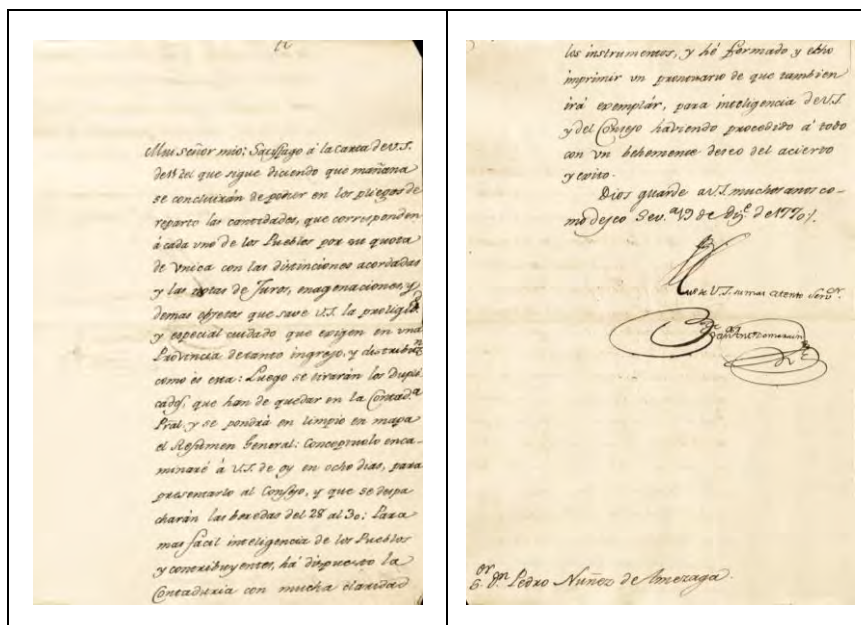 Mui señor mio: Satisfago á la carta de V.S.
de 15 del que sigue diciendo que mañana
se concluirán de poner en los pliegos de
reparto las cantidades, que corresponden
á cada vno de los Pueblos por su quota
de Vnica con las distinciones acordadas
y las notas de Juros, enagenaciones, y
demas objetos que save V.S. la prolixid.
y especial cuidado que exigen en vna
Provincia de tanto ingreso, y distribu.n
como es esta: Luego se tirarán los Dupli
cados, que han de quedar en la Contad.a
Pral. y se pondrá en limpio en mapa
el Resumen General: Conceptuolo enca-
minaré á V.S. de oy en ocho dias, para
presentarlo al Consejo, y que se despa
charán las beredas del 28 al 30: Para
mas facil inteligencia de los Pueblos
y contribuyentes, há dispuesto la
Contaduria con mucha claridad
los instrumentos, y hé formado y echo
imprimir vn prontuario de que tambien
irá exemplár, para inteligencia de V.S.
y del Consejo haviendo procedido á todo
con vn behemente deseo del acierto
y exito.
Dios guarde a V.S. muchos anos co-
mo deseo Sev.a 19 de Diz.e de 1770.
de V.S. su mas atento Serv.or
S.or D.n Pedro Nuñez de Amezaga.